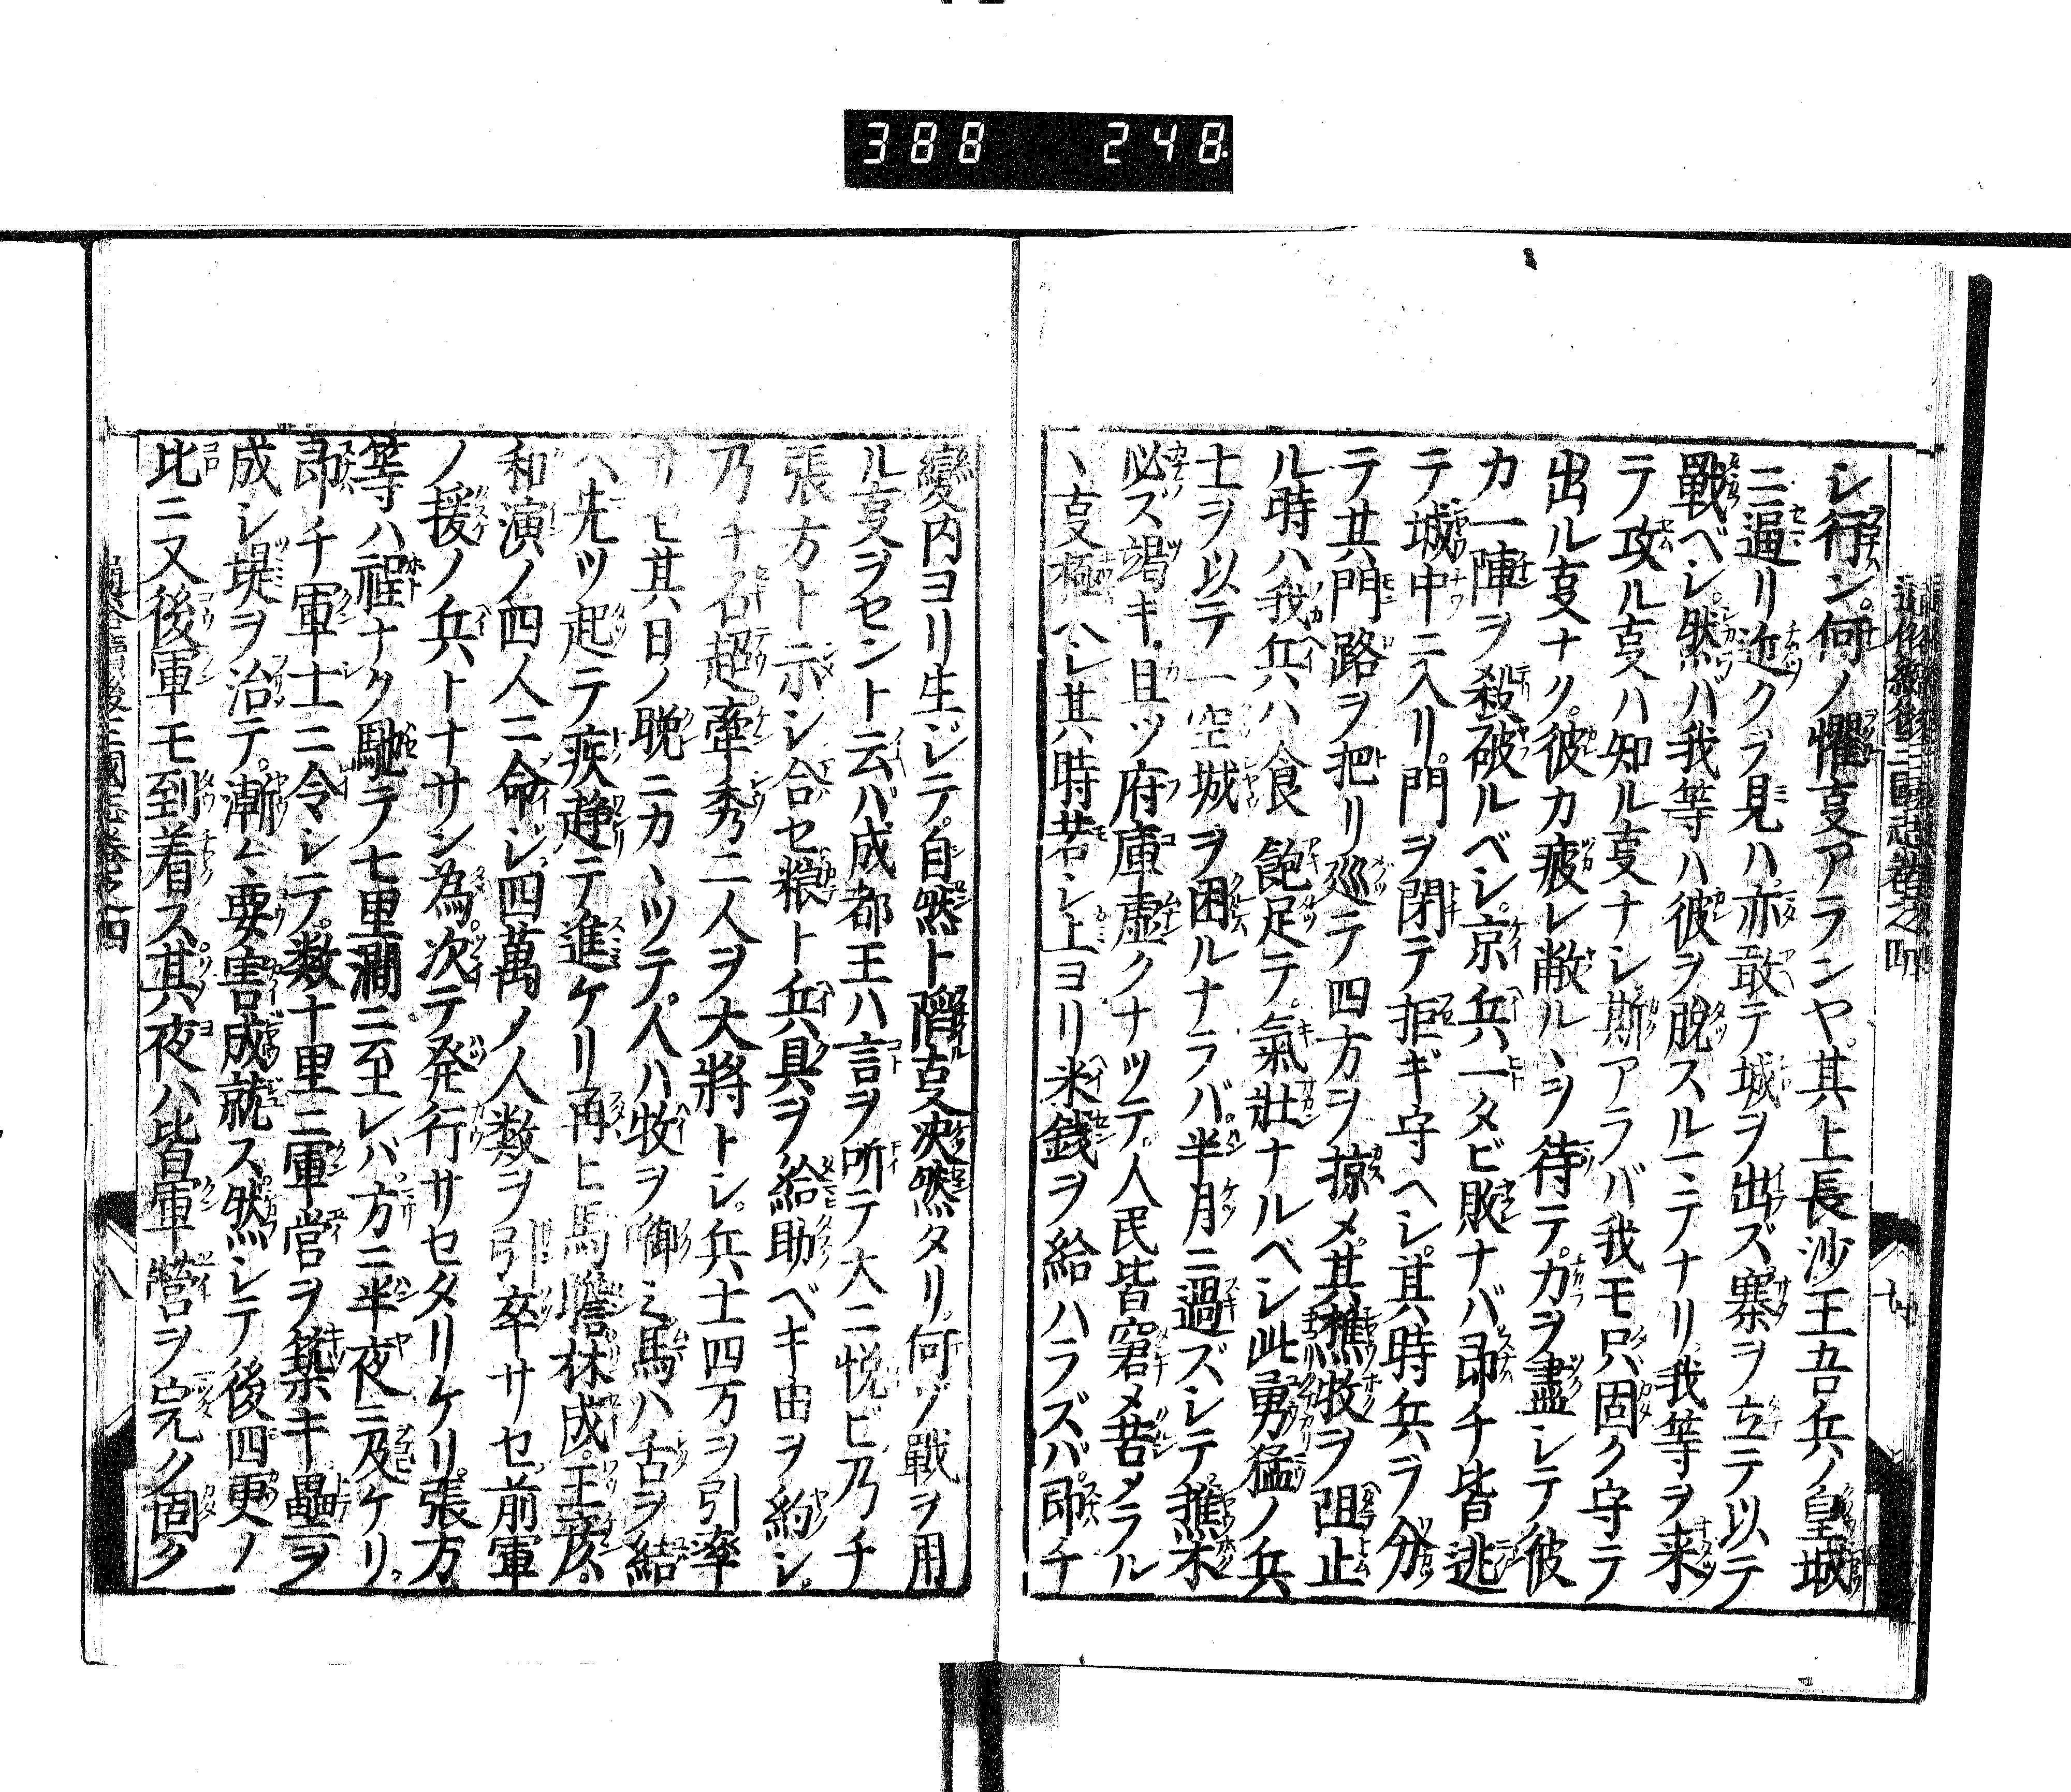 388 248
シ行ン。何ノ懼支アランヤ。其上長沙王吾兵ノ皇城
ニ逼リ近クヲ見ハ亦敢テ城ヲ出ズ寨ヲ立テ以テ
戰ベシ。然バ我等ハ彼ヲ脱スルニテナリ。我等ヲ来
テ攻ル支ハ知ル支ナシ斯アラバ我モ只固ク守テ
出ル支ナク。彼カ疲レ敝ルヽヲ待テ。力ヲ盡シテ彼
カ一陣ヲ殺破ルベシ。京兵一タビ敗ナバ即チ皆逃
テ城中ニ入リ。門ヲ閉テ拒ギ守ヘシ。其時兵ヲ分
テ其門路ヲ把リ巡テ四方ヲ掠メ。其樵牧ヲ阻止
ル時ハ我兵ハ食飽足テ。氣壯ナルベシ此勇猛ノ兵
士ヲ以テ一空城ヲ困ルナラバ。半月ニ過ズシテ樵木
必ズ竭キ。且ツ府庫虚クナツテ。人民皆窘メ苦メラル
ヽ支極ヘシ其時若シ上ヨリ米錢ヲ給ハラズバ。即チ
變内ヨリ生ジテ。自然ト隕支决然タリ。何ゾ戰ヲ用
ル支ヲセント云バ。成都王ハ言ヲ听テ大ニ悦ビ乃チ
張方ト示シ合セ粮ト兵具ヲ給助ベキ由ヲ約シ。
乃チ石超。牽秀二人ヲ大將トシ。兵士四万ヲ引率
セ其日ノ晩ニカヽツテ。人ハ牧ヲ啣ミ馬ハ舌ヲ結
ヘ先ツ起テ疾趍テ進ケリ再ヒ馬瞻。林成。王彦。
和演ノ四人ニ命ジ。四萬ノ人数ヲ引卒サセ。前軍
ノ援ノ兵トナサン為。次テ発行サセタリケリ。張方
等ハ程ナク馳テ七里澗ニ至レバ。方ニ半夜ニ及ケリ。
即チ軍士ニ令シテ。数十里ニ軍営ヲ築キ壘ヲ
成シ堤ヲ治テ。漸々要害成就ス。然シテ後四更ノ
比ニ又後軍モ到着ス。其夜ハ皆軍營ヲ完ク固ク